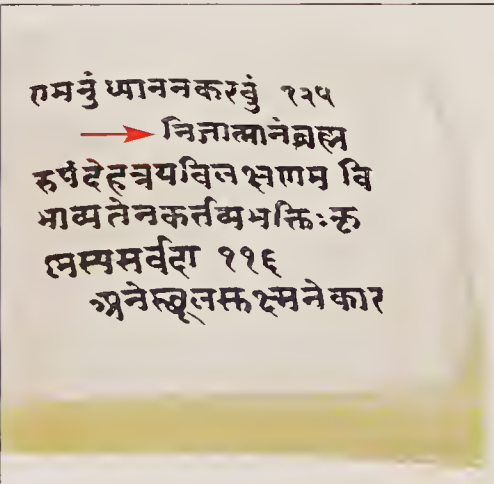 णमनुं ध्याननकरवुं १२५
निजात्मानंब्रह्म
रुपंदेहत्रयविलक्षणम वि
भाव्यतेनकर्तव्यभक्तिःकृ
ष्णस्यसर्वदा ११६
अनेस्थूलसूक्ष्मनेकार